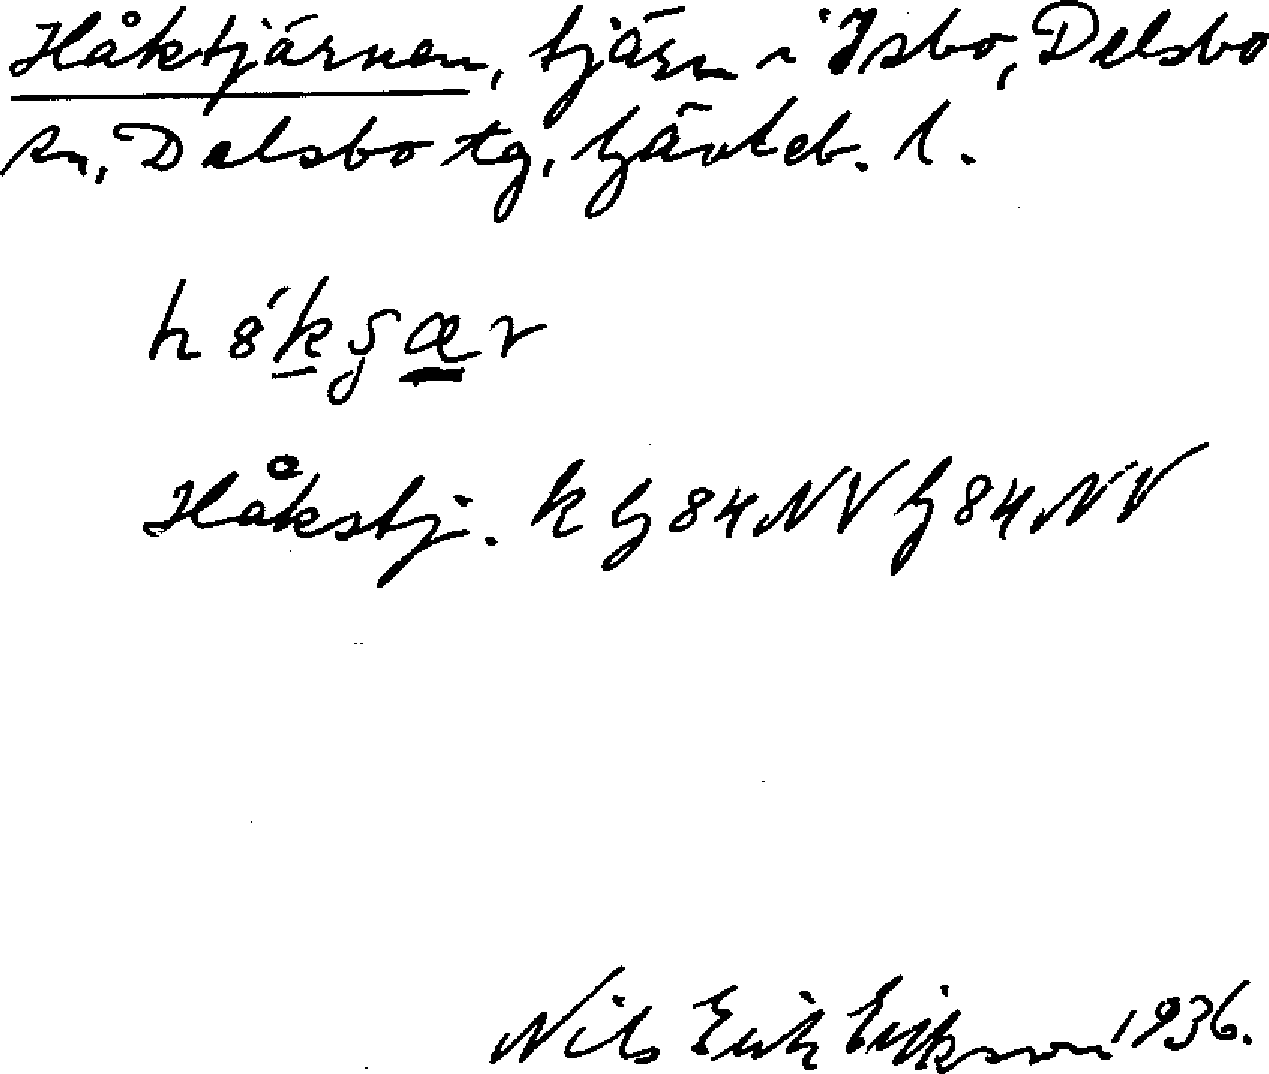 Håktjärnen, tjärn i Isbo, Delsbo
sn, Delsbo tg, Gävleb. l.
Håkstj. k G 84 NV G 84 NV
Nils Erik Eriksson 1936.